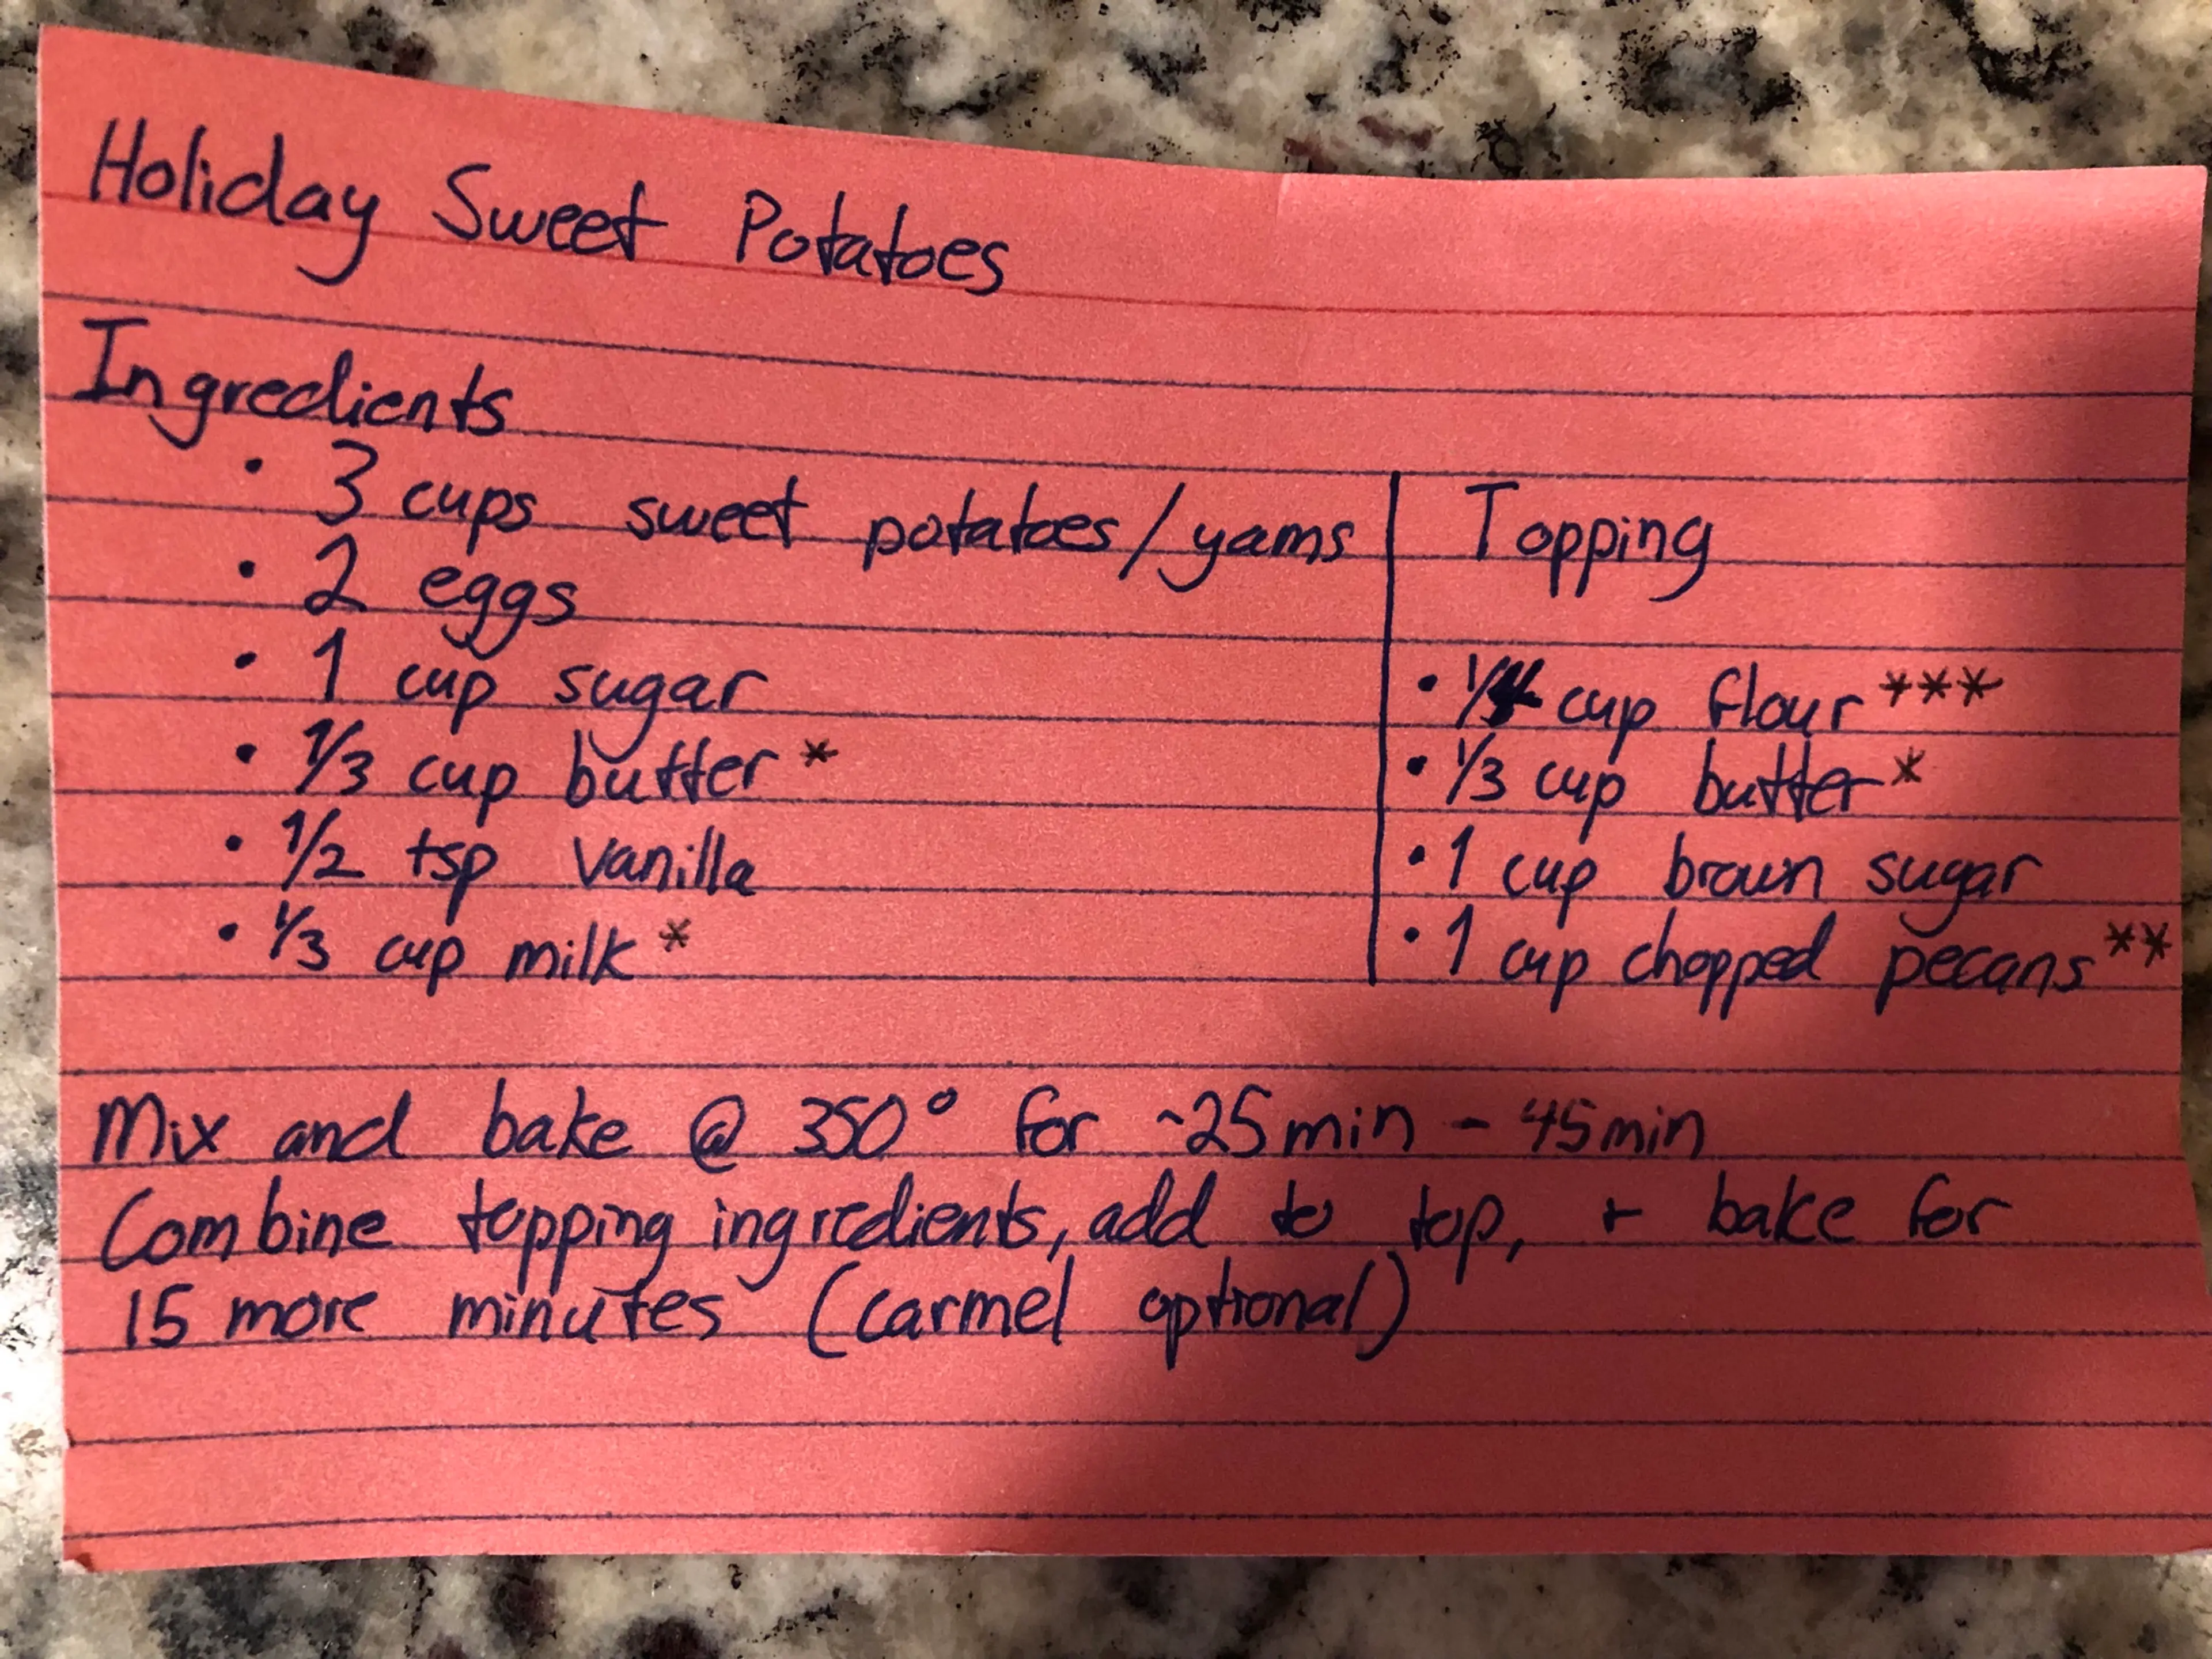 Holiday Sweet Potatoes
Ingredients
• 3 cups sweet potatoes/yams
• 2 eggs
• 1 cup sugar
• 1/3 cup butter *
• 1/2 tsp vanilla
• 1/3 cup milk *
Topping
• 1/4 cup flour ***
• 1/3 cup butter *
• 1 cup brown sugar
• 1 cup chopped pecans **
Mix and bake @ 350° for ~25min - 45min
Combine topping ingredients, add to top, + bake for
15 more minutes (carmel optional)